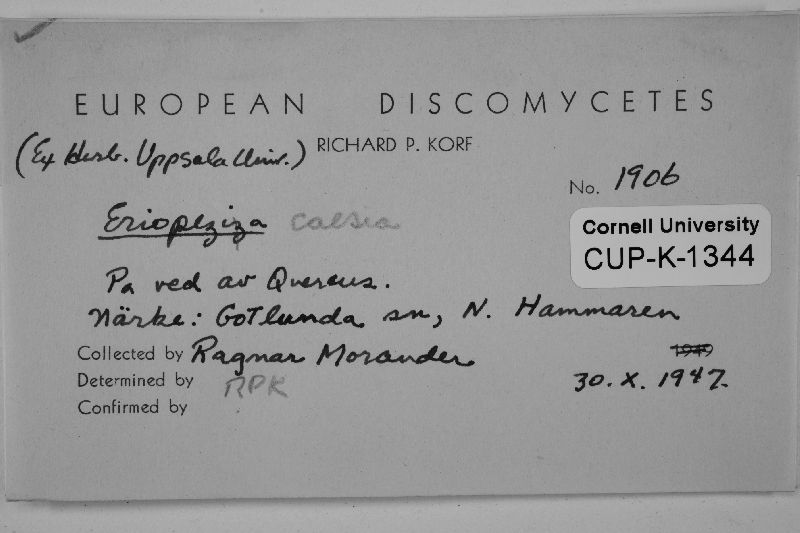 EUROPEAN DISCOMYCETES
(Ex Herb. Uppsala Univ.) RICHARD P. KORF
No. 1906
Eriopeziza caesia
Cornell University
CUP-K-1344
På ved av Quercus.
Närke: Götlunda sn, N. Hammaren
Collected by Ragnar Morander
1949
Determined by RPK
30. X. 1947.
Confirmed by